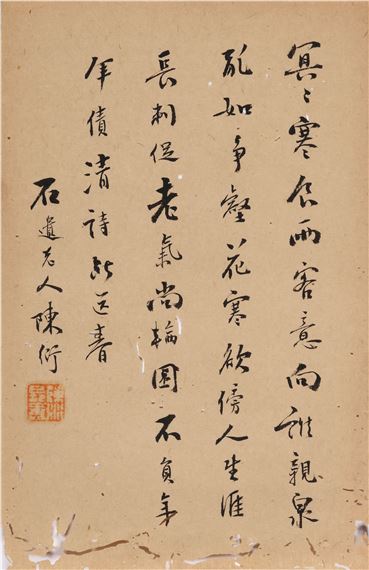 冥〻寒食雨客意向誰親泉
亂如爭壑花寒欲傍人生涯
長刺促老氣尚輪囷不負年
年債清詩斷送春
石遺老人陳衍